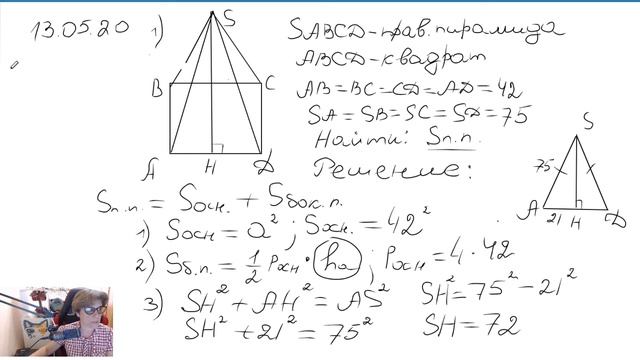 13.05.20 1)
S
B C
A H D
SABCD - прав. пирамида
ABCD - квадрат
AB = BC = CD = AD = 42
SA = SB = SC = SD = 75
Найти: Sп.п.
Решение:
S
75
A 21 H D
Sп.п. = Sосн. + Sбок.п.
1) Sосн = a² ; Sосн. = 42²
2) Sб.п. = 1/2 Pосн · ha ; Pосн = 4 · 42
3) SH² + AH² = AS² SH² = 75² - 21²
SH² + 21² = 75² SH = 72